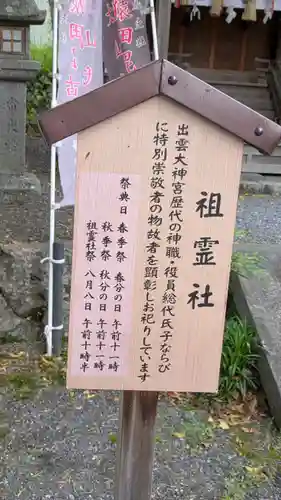 祖霊社
出雲大神宮歴代の神職・役員総代氏子ならび
に特別崇敬者の物故者を顕彰しお祀りしています
祭典日 春季祭 春分の日 午前十一時
秋季祭 秋分の日 午前十一時
祖霊社祭 八月八日 午前十時半
猿田